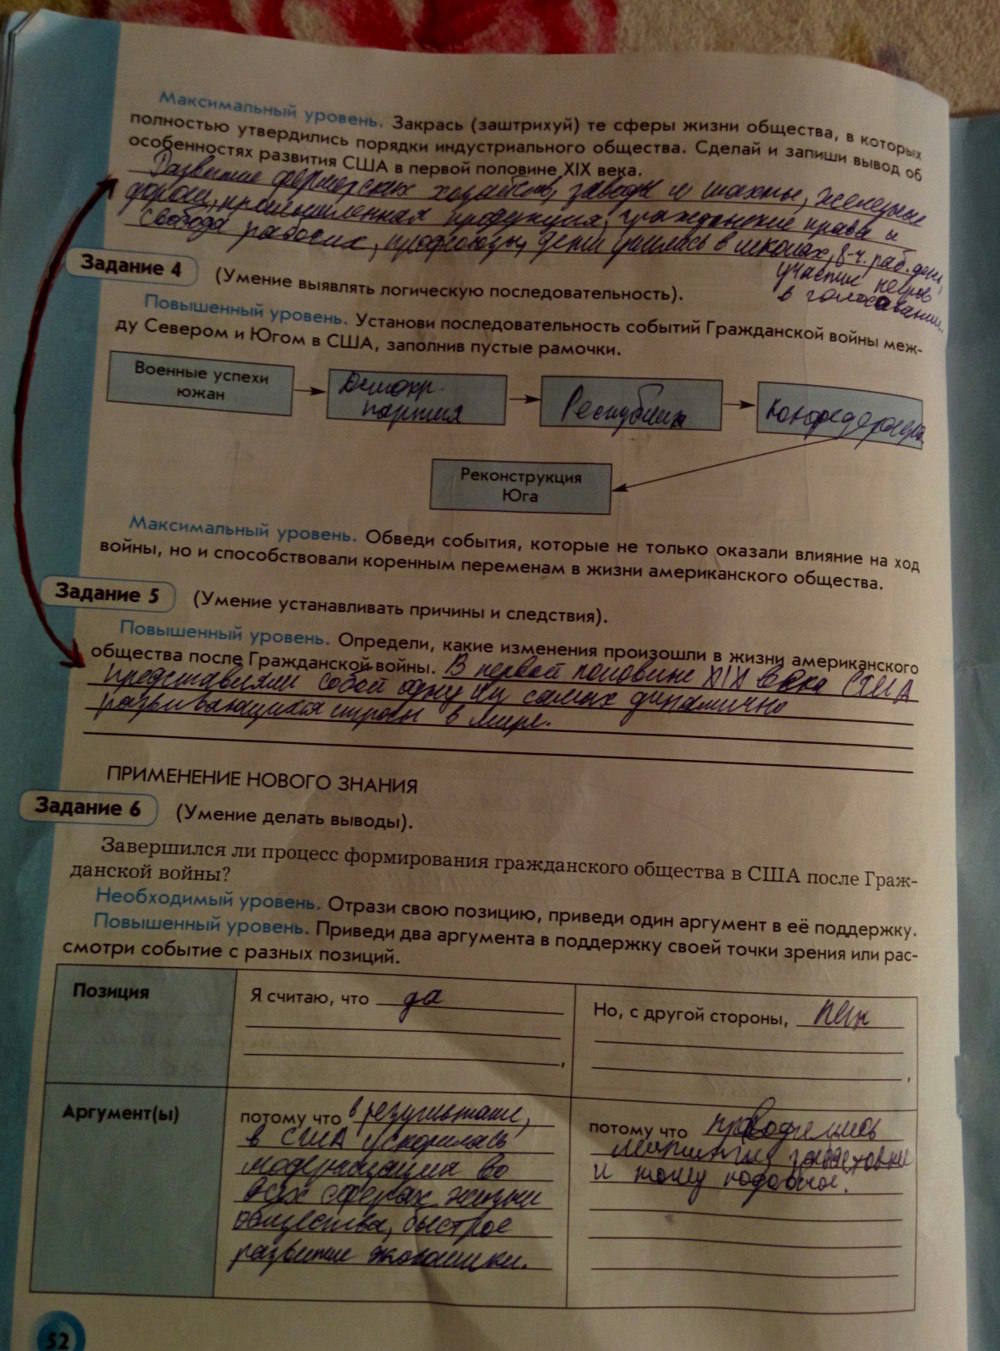 Максимальный уровень. Закрась (заштрихуй) те сферы жизни общества, в которых
полностью утвердились порядки индустриального общества. Сделай и запиши вывод об
особенностях развития США в первой половине XIX века.
Развитие фермерских хозяйств, заводы и шахты, железные
дороги, промышленная продукция, гражданские права и
свобода рабочих, профсоюзы, дети учились в школах, 8-ч. раб. день,
участие негров
в голосовании.
Задание 4 (Умение выявлять логическую последовательность).
Повышенный уровень. Установи последовательность событий Гражданской войны меж-
ду Севером и Югом в США, заполнив пустые рамочки.
Военные успехи
южан
Демокр.
партия
Республик
Реконструкция
Юга
Максимальный уровень. Обведи события, которые не только оказали влияние на ход
войны, но и способствовали коренным переменам в жизни американского общества.
Задание 5 (Умение устанавливать причины и следствия).
Повышенный уровень. Определи, какие изменения произошли в жизни американского
общества после Гражданской войны. В первой половине XIX века США
представляли собой одну из самых динамично
развивающихся стран в мире.
ПРИМЕНЕНИЕ НОВОГО ЗНАНИЯ
Задание 6 (Умение делать выводы).
Завершился ли процесс формирования гражданского общества в США после Граж-
данской войны?
Необходимый уровень. Отрази свою позицию, приведи один аргумент в её поддержку.
Повышенный уровень. Приведи два аргумента в поддержку своей точки зрения или рас-
смотри событие с разных позиций.
Позиция
Я считаю, что да
,
Но, с другой стороны, нет
.
Аргумент(ы)
потому что в результате,
в США ускорилась
модернизация во
всех сферах жизни
общества, быстрое
развитие экономики.
потому что проводились
митинги забастовки
и тому подобное.
52